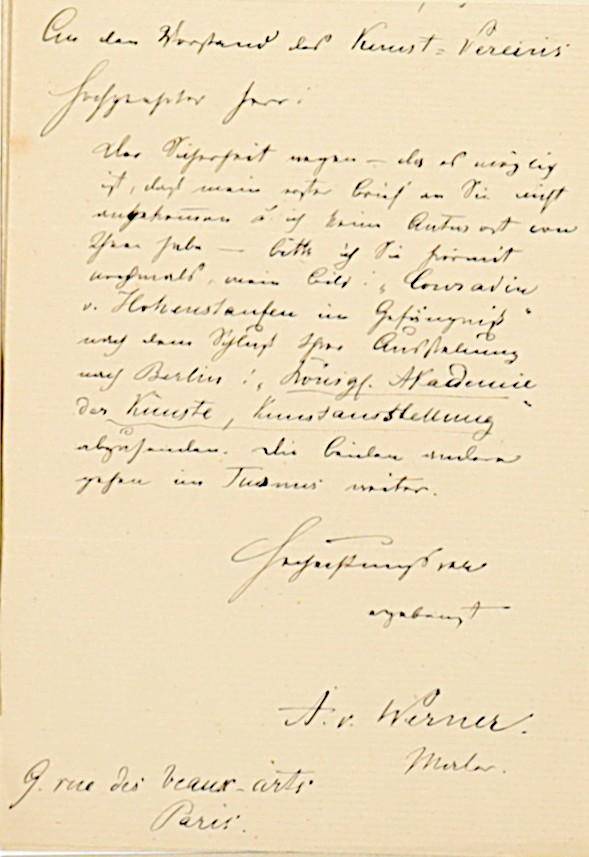 An den Vorstand des Kunst-Vereins
Hochgeehrter Herr!
Der Sicherheit wegen – da es möglich
ist, daß mein erster Brief an Sie nicht
angekommen u. ich keine Antwort von
Ihnen habe – bitte ich Sie hiermit
nochmals, mein Bild: „Conradin
v. Hohenstaufen im Gefängniß“
nach dem Schluß Ihrer Ausstellung
nach Berlin: „Königl. Akademie
der Künste, Kunstausstellung“
abzusenden. Die beiden andern
gehen im Turnus weiter.
Hochachtungsvoll
ergebenst
A. v. Werner.
Maler.
9. rue des beaux-arts
Paris.